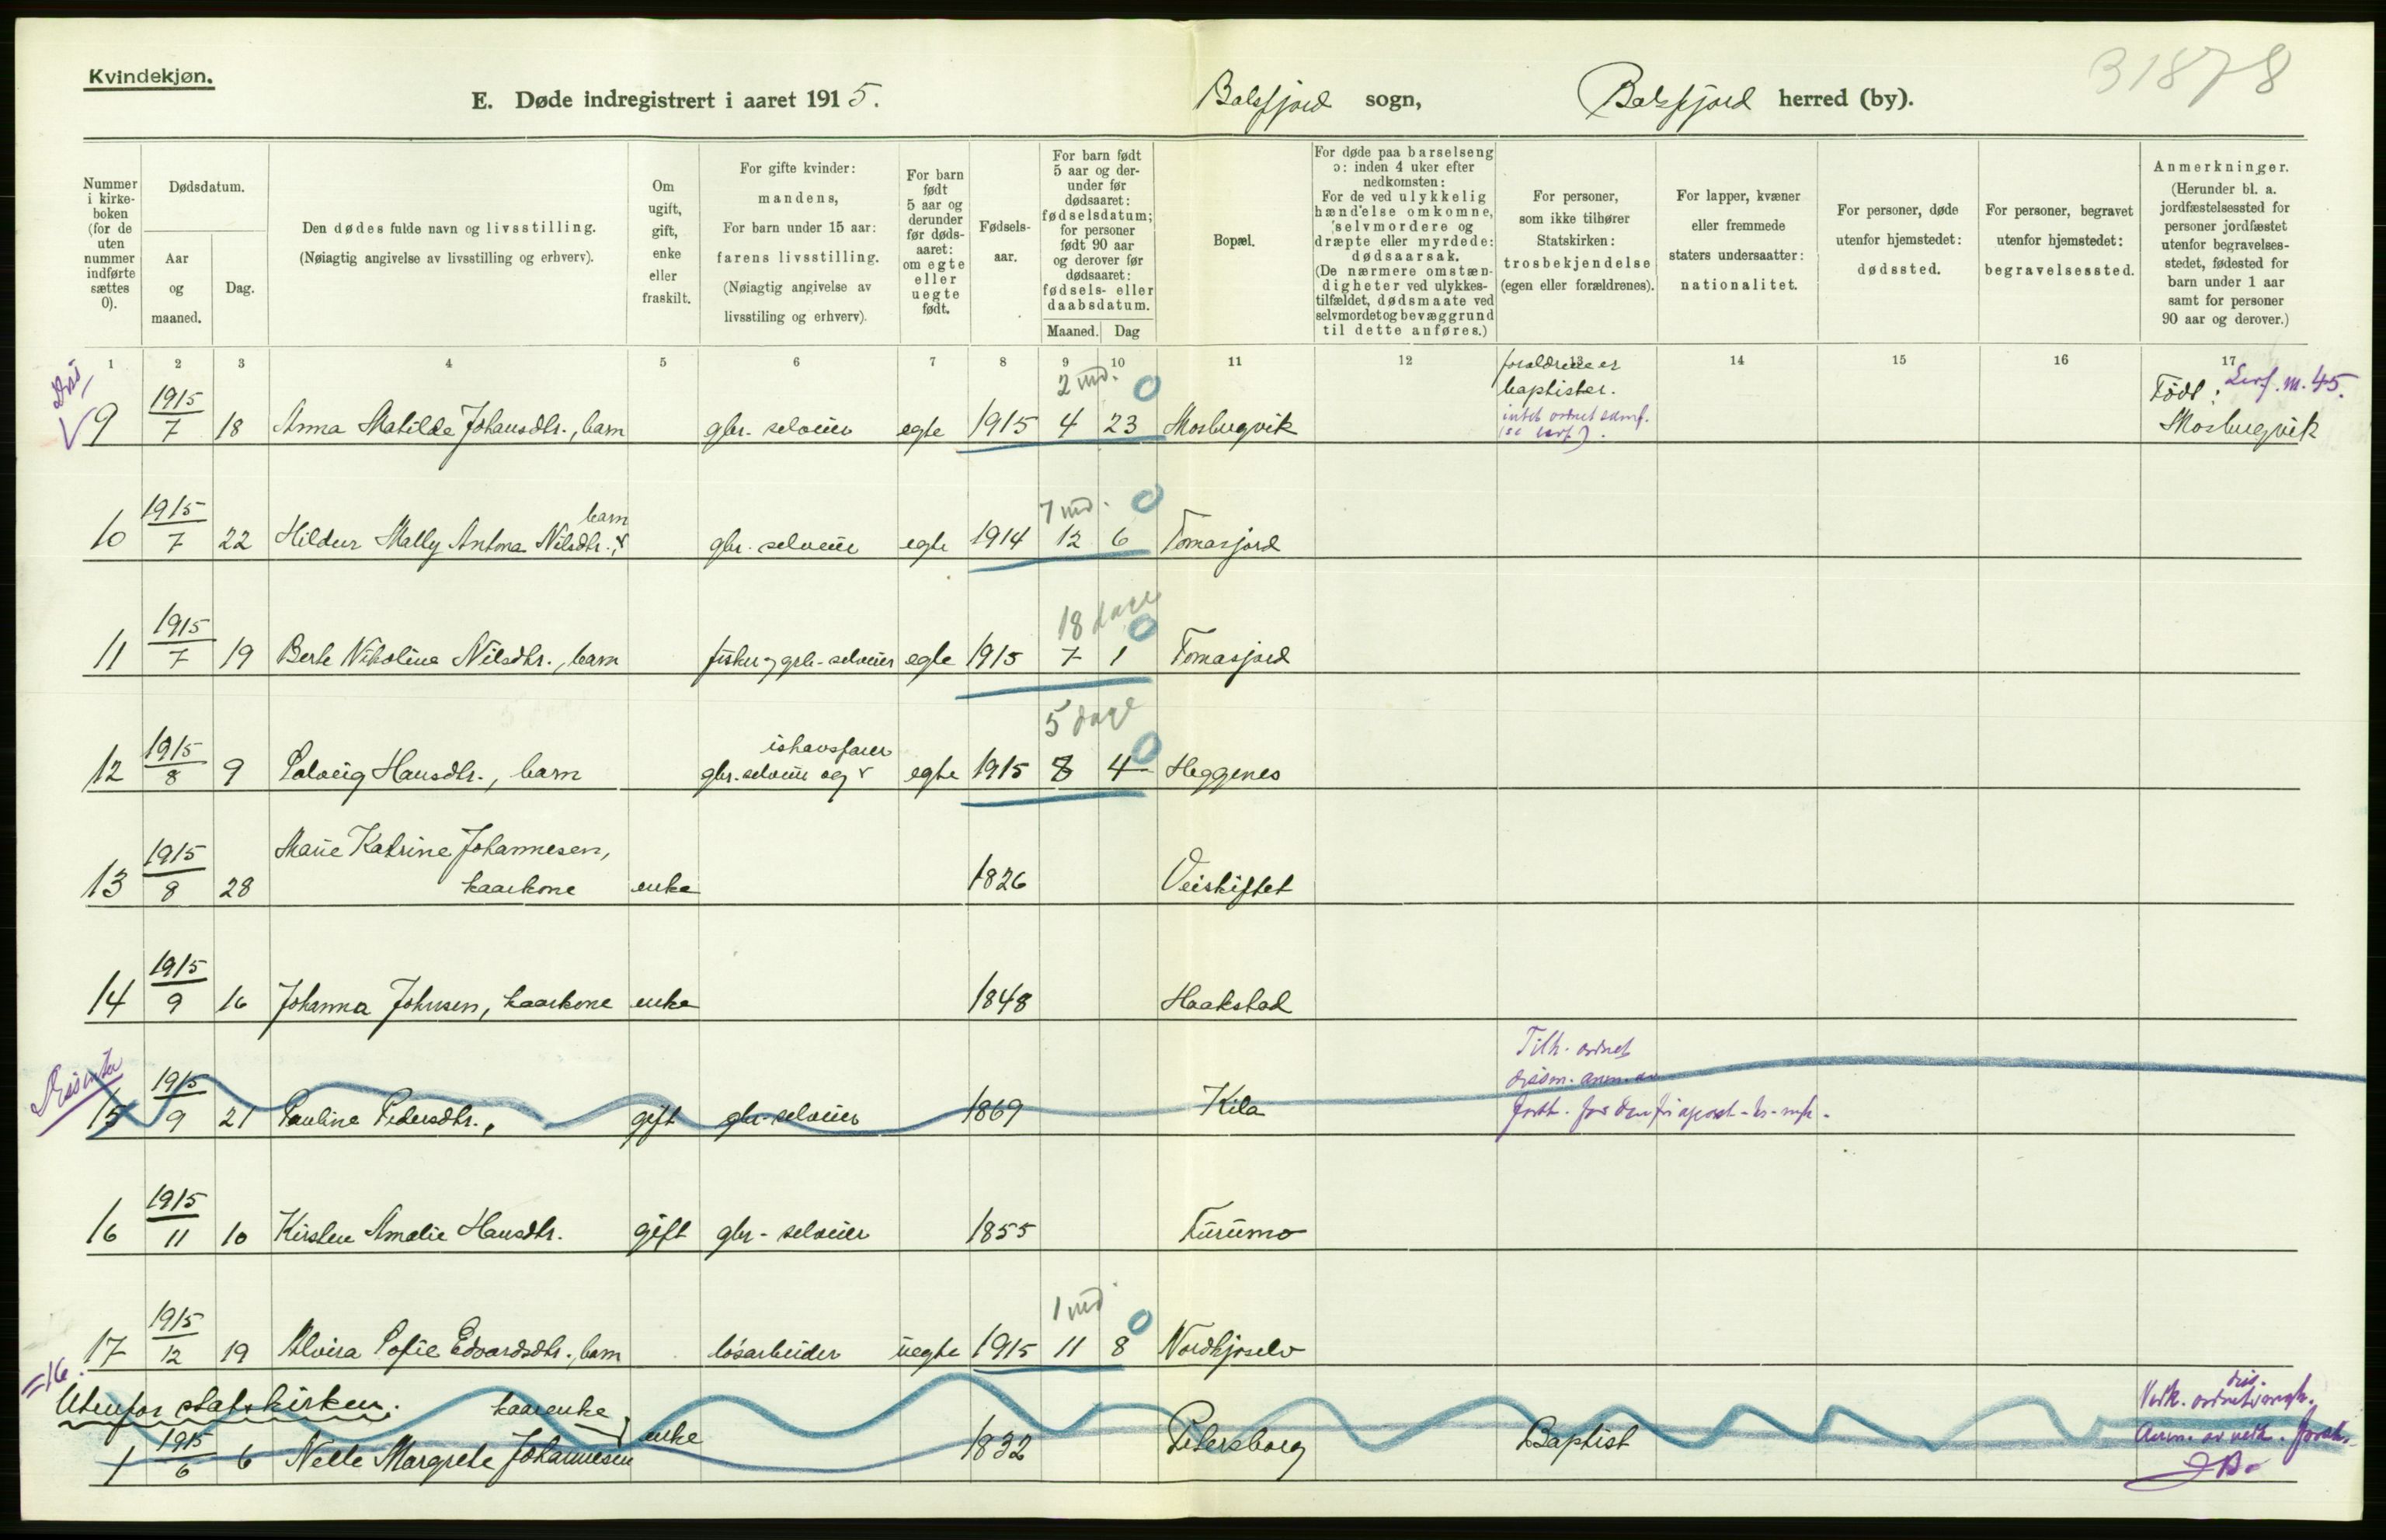 Kvindekjøn.
31878
E. Døde indregistrert i aaret 1915. Balsfjord sogn, Balsfjord herred (by).
Nummer i kirkeboken (for de uten nummer indførte sættes 0).
Dødsdatum.
Aar og maaned.
Dag.
Den dødes fulde navn og livsstilling. (Nøiagtig angivelse av livsstilling og erhverv).
Om ugift, gift, enke eller fraskilt.
For gifte kvinder: mandens, For barn under 15 aar: farens livsstilling. (Nøiagtig angivelse av livsstiling og erhverv).
For barn født 5 aar og derunder før dødsaaret: om egte eller uegte født.
Fødselsaar.
For barn født 5 aar og derunder før dødsaaret: fødselsdatum; for personer født 90 aar og derover før dødsaaret: fødsels- eller daabsdatum.
Maaned. Dag
Bopæl.
For døde paa barselseng ɔ: inden 4 uker efter nedkomsten: For de ved ulykkelig hændelse omkomne, selvmordere og dræpte eller myrdede: dødsaarsak. (De nærmere omstændigheter ved ulykkestilfældet, dødsmaate ved selvmordet og bevæggrund til dette anføres.)
For personer, som ikke tilhører Statskirken: trosbekjendelse (egen eller forældrenes).
For lapper, kvæner eller fremmede staters undersaatter: nationalitet.
For personer, døde utenfor hjemstedet: dødssted.
For personer, begravet utenfor hjemstedet: begravelsessted.
Anmerkninger. (Herunder bl. a. jordfæstelsessted for personer jordfæstet utenfor begravelsesstedet, fødested for barn under 1 aar samt for personer 90 aar og derover.)
1 2 3 4 5 6 7 8 9 10 11 12 13 14 15 16 17
2 md. 0 forældrene er baptister.
9 1915/7 18 Anna Matilde Johansdtr., barn gbr. selveier egte 1915 4 23 Mosbugvik Født: Mosbugvik
7 md. 0
10 1915/7 22 Hildur Mally Antona Nilsdtr., barn gbr. selveier egte 1914 12 6 Tomasjord
18 dage 0
11 1915/7 19 Berte Nikoline Nilsdtr., barn fisker og grb-selveier egte 1915 7 1 Tomasjord
5 dage 0
12 1915/8 9 Solveig Hansdtr., barn gbr. selveier og ishavsfarer egte 1915 8 4 Heggenes
13 1915/8 28 Marie Katrine Johannesen, kaarkone enke 1826 Veiskiftet
14 1915/9 16 Johanna Johnsen, kaarkone enke 1848 Haakstad
Dissenter Tilh. ordnet
15 1915/9 21 Pauline Pedersdtr., gift gbr-selveier 1869 Kila
16 1915/11 10 Kirsten Amalie Hansdtr. gift gbr-selveier 1855 Furumo
1 md 0
17 1915/12 19 Alvira Sofie Edvardsdtr., barn løsarbeider uegte 1915 11 8 Nordkjoselv
=16.
Utenfor statskirken.
1 1915/6 6 Nelle Margrete Johannesen kaarenke enke 1832 Petersborg Baptist